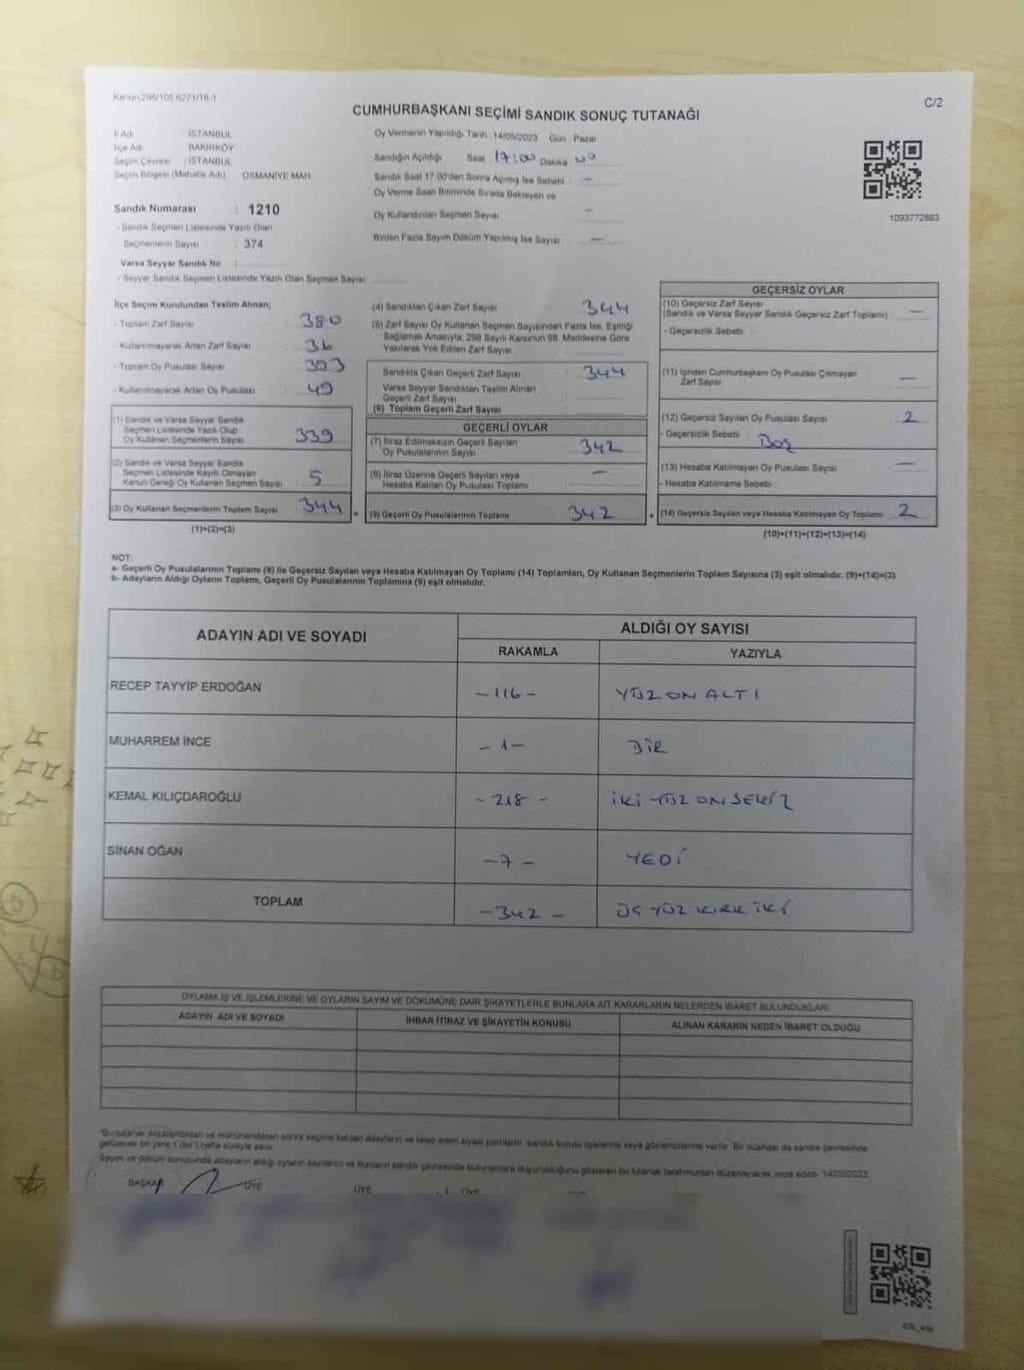 Kanun 298/105 6271/18-1
C/2
CUMHURBAŞKANI SEÇİMİ SANDIK SONUÇ TUTANAĞI
İl Adı : İSTANBUL
İlçe Adı : BAKIRKÖY
Seçim Çevresi : İSTANBUL
Seçim Bölgesi (Mahalle Adı) OSMANİYE MAH.
Sandık Numarası : 1210
- Sandık Seçmen Listesinde Yazılı Olan
Seçmenlerin Sayısı : 374
Varsa Seyyar Sandık No :
- Seyyar Sandık Seçmen Listesinde Yazılı Olan Seçmen Sayısı
Oy Vermenin Yapıldığı Tarih : 14/05/2023 Gün : Pazar
Sandığın Açıldığı Saat 17:00 Dakika 00
Sandık Saat 17:00'den Sonra Açılmış İse Sebebi : —
Oy Verme Saati Bitiminde Sırada Bekleyen ve
Oy Kullandırılan Seçmen Sayısı —
Birden Fazla Sayım Döküm Yapılmış İse Sayısı —
1093772883
İlçe Seçim Kurulundan Teslim Alınan;
- Toplam Zarf Sayısı : 380
- Kullanılmayarak Artan Zarf Sayısı : 36
- Toplam Oy Pusulası Sayısı : 393
- Kullanılmayarak Artan Oy Pusulası : 49
(1) Sandık ve Varsa Seyyar Sandık
Seçmen Listesinde Yazılı Olup
Oy Kullanan Seçmenlerin Sayısı 339
(2) Sandık ve Varsa Seyyar Sandık
Seçmen Listesinde Kayıtlı Olmayan
Kanun Gereği Oy Kullanan Seçmen Sayısı 5
(3) Oy Kullanan Seçmenlerin Toplam Sayısı 344
(1)+(2)=(3)
(4) Sandıktan Çıkan Zarf Sayısı : 344
(5) Zarf Sayısı Oy Kullanan Seçmen Sayısından Fazla İse, Eşitliği
Sağlamak Amacıyla; 298 Sayılı Kanunun 98. Maddesine Göre
Yakılarak Yok Edilen Zarf Sayısı
Sandıkta Çıkan Geçerli Zarf Sayısı : 344
Varsa Seyyar Sandıktan Teslim Alınan
Geçerli Zarf Sayısı
(6) Toplam Geçerli Zarf Sayısı
GEÇERLİ OYLAR
(7) İtiraz Edilmeksizin Geçerli Sayılan
Oy Pusulalarının Sayısı : 342
(8) İtiraz Üzerine Geçerli Sayılan veya
Hesaba Katılan Oy Pusulası Toplamı —
= (9) Geçerli Oy Pusulalarının Toplamı 342 +
GEÇERSİZ OYLAR
(10) Geçersiz Zarf Sayısı
(Sandık ve Varsa Seyyar Sandık Geçersiz Zarf Toplamı) : —
- Geçersizlik Sebebi :
(11) İçinden Cumhurbaşkanı Oy Pusulası Çıkmayan
Zarf Sayısı —
(12) Geçersiz Sayılan Oy Pusulası Sayısı 2
- Geçersizlik Sebebi : Boş
(13) Hesaba Katılmayan Oy Pusulası Sayısı —
- Hesaba Katılmama Sebebi :
(14) Geçersiz Sayılan veya Hesaba Katılmayan Oy Toplamı 2
(10)+(11)+(12)+(13)=(14)
NOT:
a- Geçerli Oy Pusulalarının Toplamı (9) ile Geçersiz Sayılan veya Hesaba Katılmayan Oy Toplamı (14) Toplamları, Oy Kullanan Seçmenlerin Toplam Sayısına (3) eşit olmalıdır. (9)+(14)=(3)
b- Adayların Aldığı Oyların Toplamı, Geçerli Oy Pusulalarının Toplamına (9) eşit olmalıdır.
ADAYIN ADI VE SOYADI
ALDIĞI OY SAYISI
RAKAMLA YAZIYLA
RECEP TAYYİP ERDOĞAN -116- YÜZ ON ALTI
MUHARREM İNCE -1- BİR
KEMAL KILIÇDAROĞLU -218- İKİ YÜZ ON SEKİZ
SİNAN OĞAN -7- YEDİ
TOPLAM -342- ÜÇ YÜZ KIRK İKİ
OYLAMA İŞ VE İŞLEMLERİNE VE OYLARIN SAYIM VE DÖKÜMÜNE DAİR ŞİKAYETLERLE BUNLARA AİT KARARLARIN NELERDEN İBARET BULUNDUKLARI
ADAYIN ADI VE SOYADI İHBAR İTİRAZ VE ŞİKAYETİN KONUSU ALINAN KARARIN NEDEN İBARET OLDUĞU
*Bu tutanak imzalandıktan ve mühürlendikten sonra seçime katılan adayların ve talep eden siyasi partilerin, sandık kurulu üyelerine veya gözlemcilerine verilir. Bir nüshası da sandık çevresinde
görülecek bir yere 1 (bir) hafta süreyle asılır.
Sayım ve döküm sonucunda adayların aldığı oyların sayılarını ve bunların sandık çevresinde bulunanlara duyurulduğunu gösteren bu tutanak tarafımızdan düzenlenerek imza edildi. 14/05/2023
BAŞKAN ÜYE ÜYE ÜYE